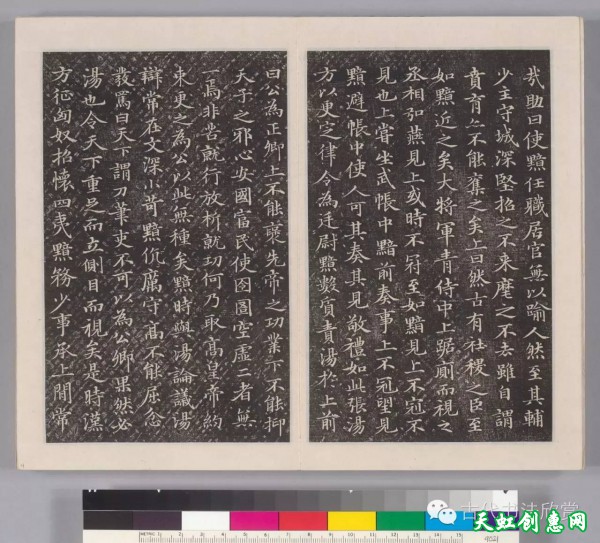 哉助曰使黯任職居官無以踰人然至其輔
少主守城深堅招之不来麾之不去雖自謂
賁育亦不能奪之矣上曰然古有社稷之臣至
如黯近之矣大將軍青侍中上踞厠而視之
丞相弘燕見上或時不冠至如黯見上不冠不
見也上嘗坐武帳中黯前奏事上不冠望見
黯避帳中使人可其奏其見敬禮如此張湯
方以更定律令為廷尉黯數質責湯於上前
曰公為正卿上不能襃先帝之功業下不能抑
天下之邪心安國富民使囹圄空虛二者無
一焉非苦就行放析就功何乃取高皇帝約
束更之為公以此無種矣黯時與湯論議湯
辯常在文深小苛黯伉厲守高不能屈忿
發罵曰天下謂刀筆吏不可以為公卿果然必
湯也令天下重足而立側目而視矣是時漢
方征匈奴招懷四夷黯務少事承上間常
古代书法欣赏
天虹创惠网